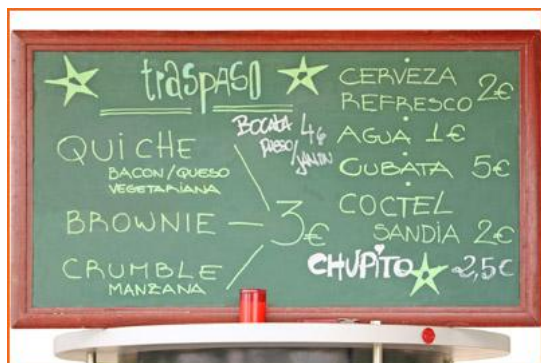 traspaso
QUICHE
BACON/QUESO
VEGETARIANA
BROWNIE
CRUMBLE
MANZANA
3€
BOCATA 4€
QUESO
/JAMON
CERVEZA
REFRESCO 2€
AGUA 1€
CUBATA 5€
COCTEL
SANDIA 2€
CHUPITO 2,5€